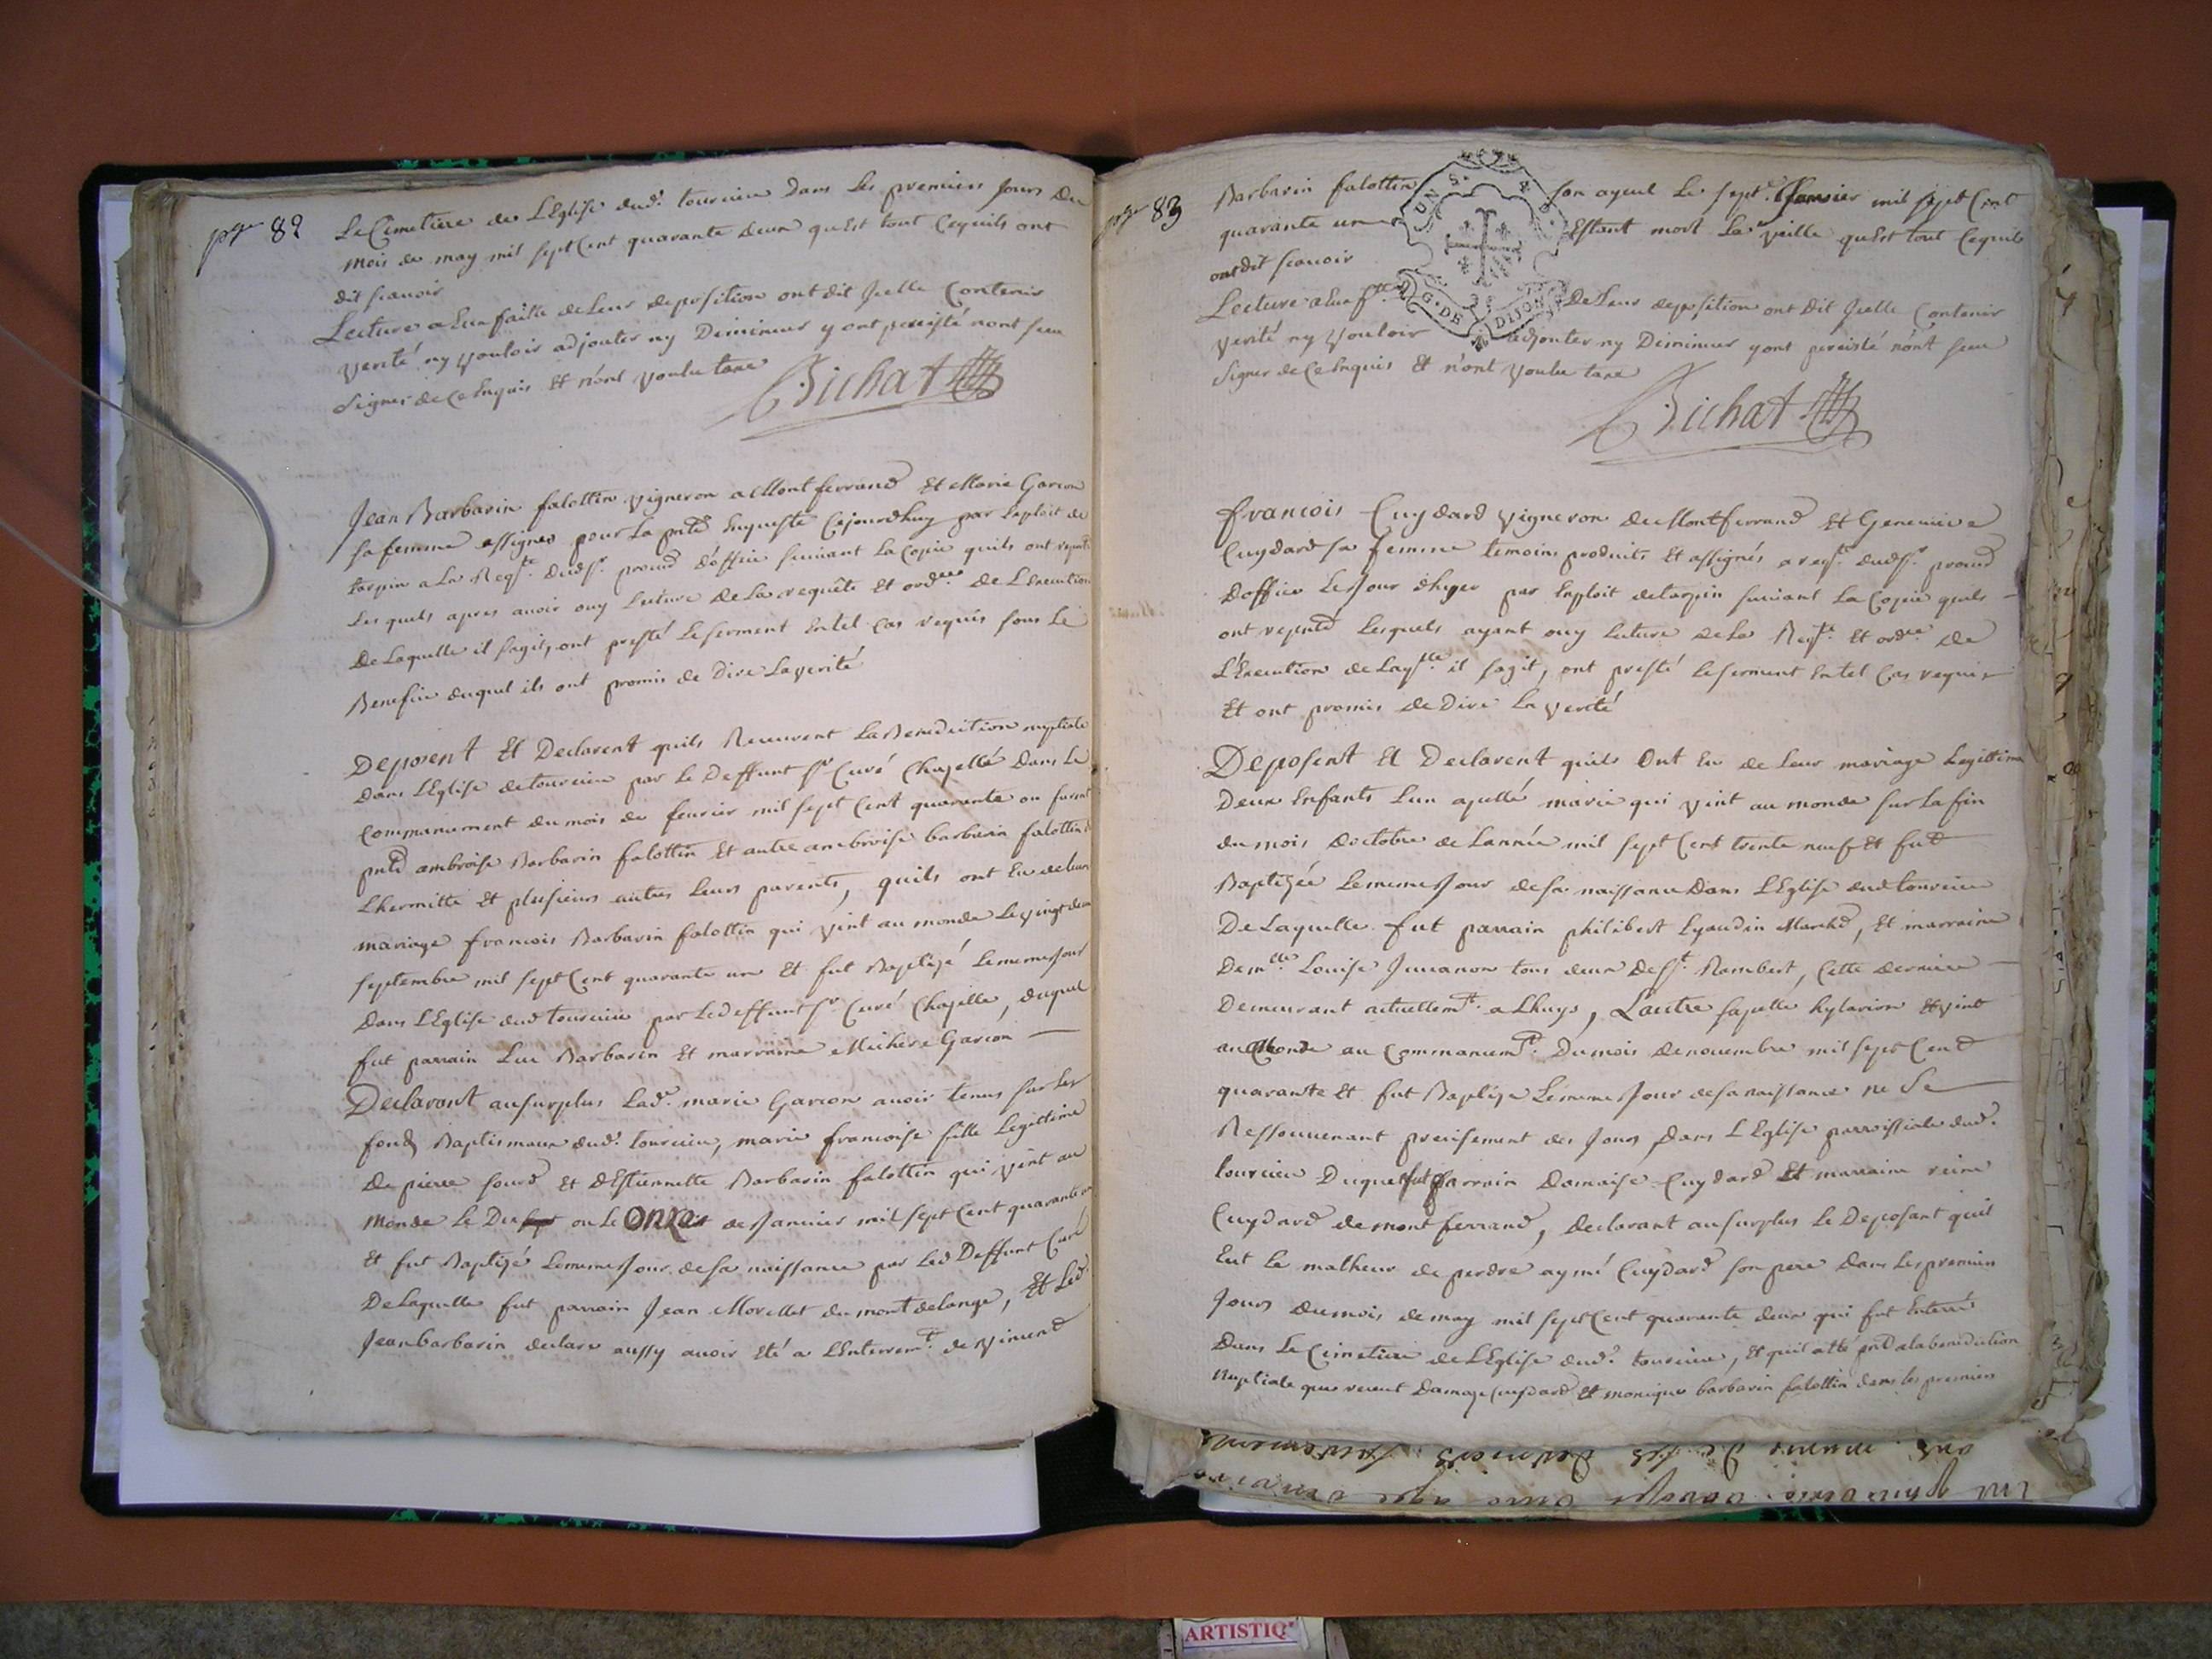 page 82
Le Cimetiere de L'Eglise dud. tourcieu Dans les premiers Jours Du
mois de may mil sept Cent quarante deux qu'est tout Cequils ont
dit scauoir
Lecture a Eux faitte deleur deposition ont dit Jcelle Contenir
verité ny vouloir adjouter ny Diminuer y ont persisté nont sceu
signer de Ce Enquis Et n'ont voulu taxe
Bichat
Jean Barbarin falottin vigneron a Montferrand Et Marie Garcon
sa femme assignes pour La pnte Enqueste Cejourdhuy par Exploit de
targin a La Reqte dud Sr procur d'office suiuant La Copie quils ont
Les quels apres auoir ouy Lecture De La requête Et ordce De L'Execution
De Laquelle il sagit, ont presté Leserment Entel Cas requis sous Le
Benefice duquel ils ont promis de Dire La verité
Deposent Et Declarent quils Receurent La Benediction nuptiale
Dans L'Eglise detourcieu par Le Deffunt Sr Curé Chapellé Dans Le
Commancement du mois de feurier mil sept Cent quarante ou furent
pnts ambroise Barbarin falottin Et autre ambroise barbarin falottin
L'hermitte Et plusieurs autres Leurs parents, quils ont Eu deleur
mariage francois Barbarin falottin qui vint au monde Le vingt deux
septembre mil sept Cent quarante un Et fut Baptizé Lememe Jour
Dans L'Eglise dud tourcieu par Led deffunt Sr Curé Chapelle, duquel
fut parrain Luc Barbarin Et marraine Michere Garcon
Declarant ausurplus Lad. marie Garcon auoir tenus sur Les
fonds Baptismaux dud. tourcieu, marie francoise fille Legittime
De pierre sourd Et d'Estiennette Barbarin falottin qui vint au
monde Le Dix ou Le onze de Januier mil sept Cent quarante un
Et fut Baptizé Lememe Jour desa naissance par Led Deffunt Curé
De Laquelle fut parrain Jean Morellet du mont delange, Et Led
Jean barbarin declare aussy auoir Eté a L'Enterremt de vincent
page 83
Barbarin falottin son ayeul Le sept Januier mil sept Cent
quarante un Estant mort La veille qu'Est tout Cequils
ont dit scauoir
Lecture a Eux fte De Leur deposition ont dit Jcelle Contenir
verité ny vouloir adjouter ny Diminuer y ont persisté n'ont sceu
signer de Ce Enquis Et n'ont voulu taxe
Bichat
UN S.
G. DE DIJON
francois Cuydard vigneron de Montferrand Et Geneuieue
Cuydard sa femme temoins produits Et assignés a reqte dud Sr procur
D'office Le Jour d'hyer par Exploit detargin suiuant La Copie quils
ont Lesquels ayant ouy Lecture de La Reqte Et ordce de
L'Execution de Laqlle il sagit, ont presté Leserment Entel Cas requis
Et ont promis de Dire La verité
Deposent Et Declarent quils Ont Eu de Leur mariage Legittime
Deux Enfants L'un apellé marie qui vint au monde sur La fin
du mois d'octobre de L'année mil sept Cent trente neuf Et fut
Baptizée Lememe Jour desa naissance Dans L'Eglise dud tourcieu
De Laquelle fut parrain philibert Lyaudin Marchd, Et marraine
Demlle Louise Juuanon tous deux de St Rambert, Cette derniere
Demeurant actuellemt a Lhuys, L'autre sapelle hylarion Et vint
au Monde au Commancemt Dumois denouembre mil sept Cent
quarante Et fut Baptize Lememe Jour desa naissance ne se
Ressouuenant precisement des Jours, Dans L'Eglise parroissiale dud.
tourcieu Duquel fut parrain Damaise Cuydard Et marraine reine
Cuydard de montferrand, declarant ausurplus Le Deposant quil
Eut Le malheur de perdre aymé Cuydard son pere Dans Les premiers
Jours dumois demay mil sept Cent quarante deux qui fut Enterré
Dans Le Cimetiere de L'Eglise dud. tourcieu, Et quil a Eté pnt a La benediction
Nuptiale que receut Damaze Cuydard Et monique barbarin falottin dans les premiers
ARTISTIQ